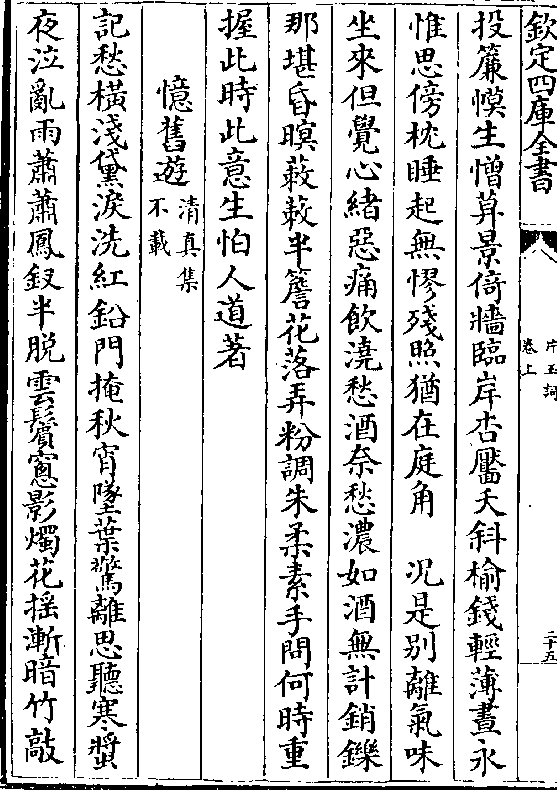 欽定四庫全書
片玉詞
卷上
二十五
投簾幙生憎暮景倚牆臨岸杏靨夭斜榆錢輕薄晝永
惟思傍枕睡起無憀殘照猶在庭角　況是别離氣味
坐來但覺心緒惡痛飲澆愁酒奈愁濃如酒無計銷鑠
那堪昏暝蔌蔌半簷花落弄粉調朱柔素手問何時重
握此時此意生怕人道著
憶舊遊 清真集不載
記愁橫淺黛淚洗紅鉛門掩秋宵墜葉驚離思聽寒螿
夜泣亂雨蕭蕭鳳釵半脫雲鬢窻影燭花搖漸暗竹敲